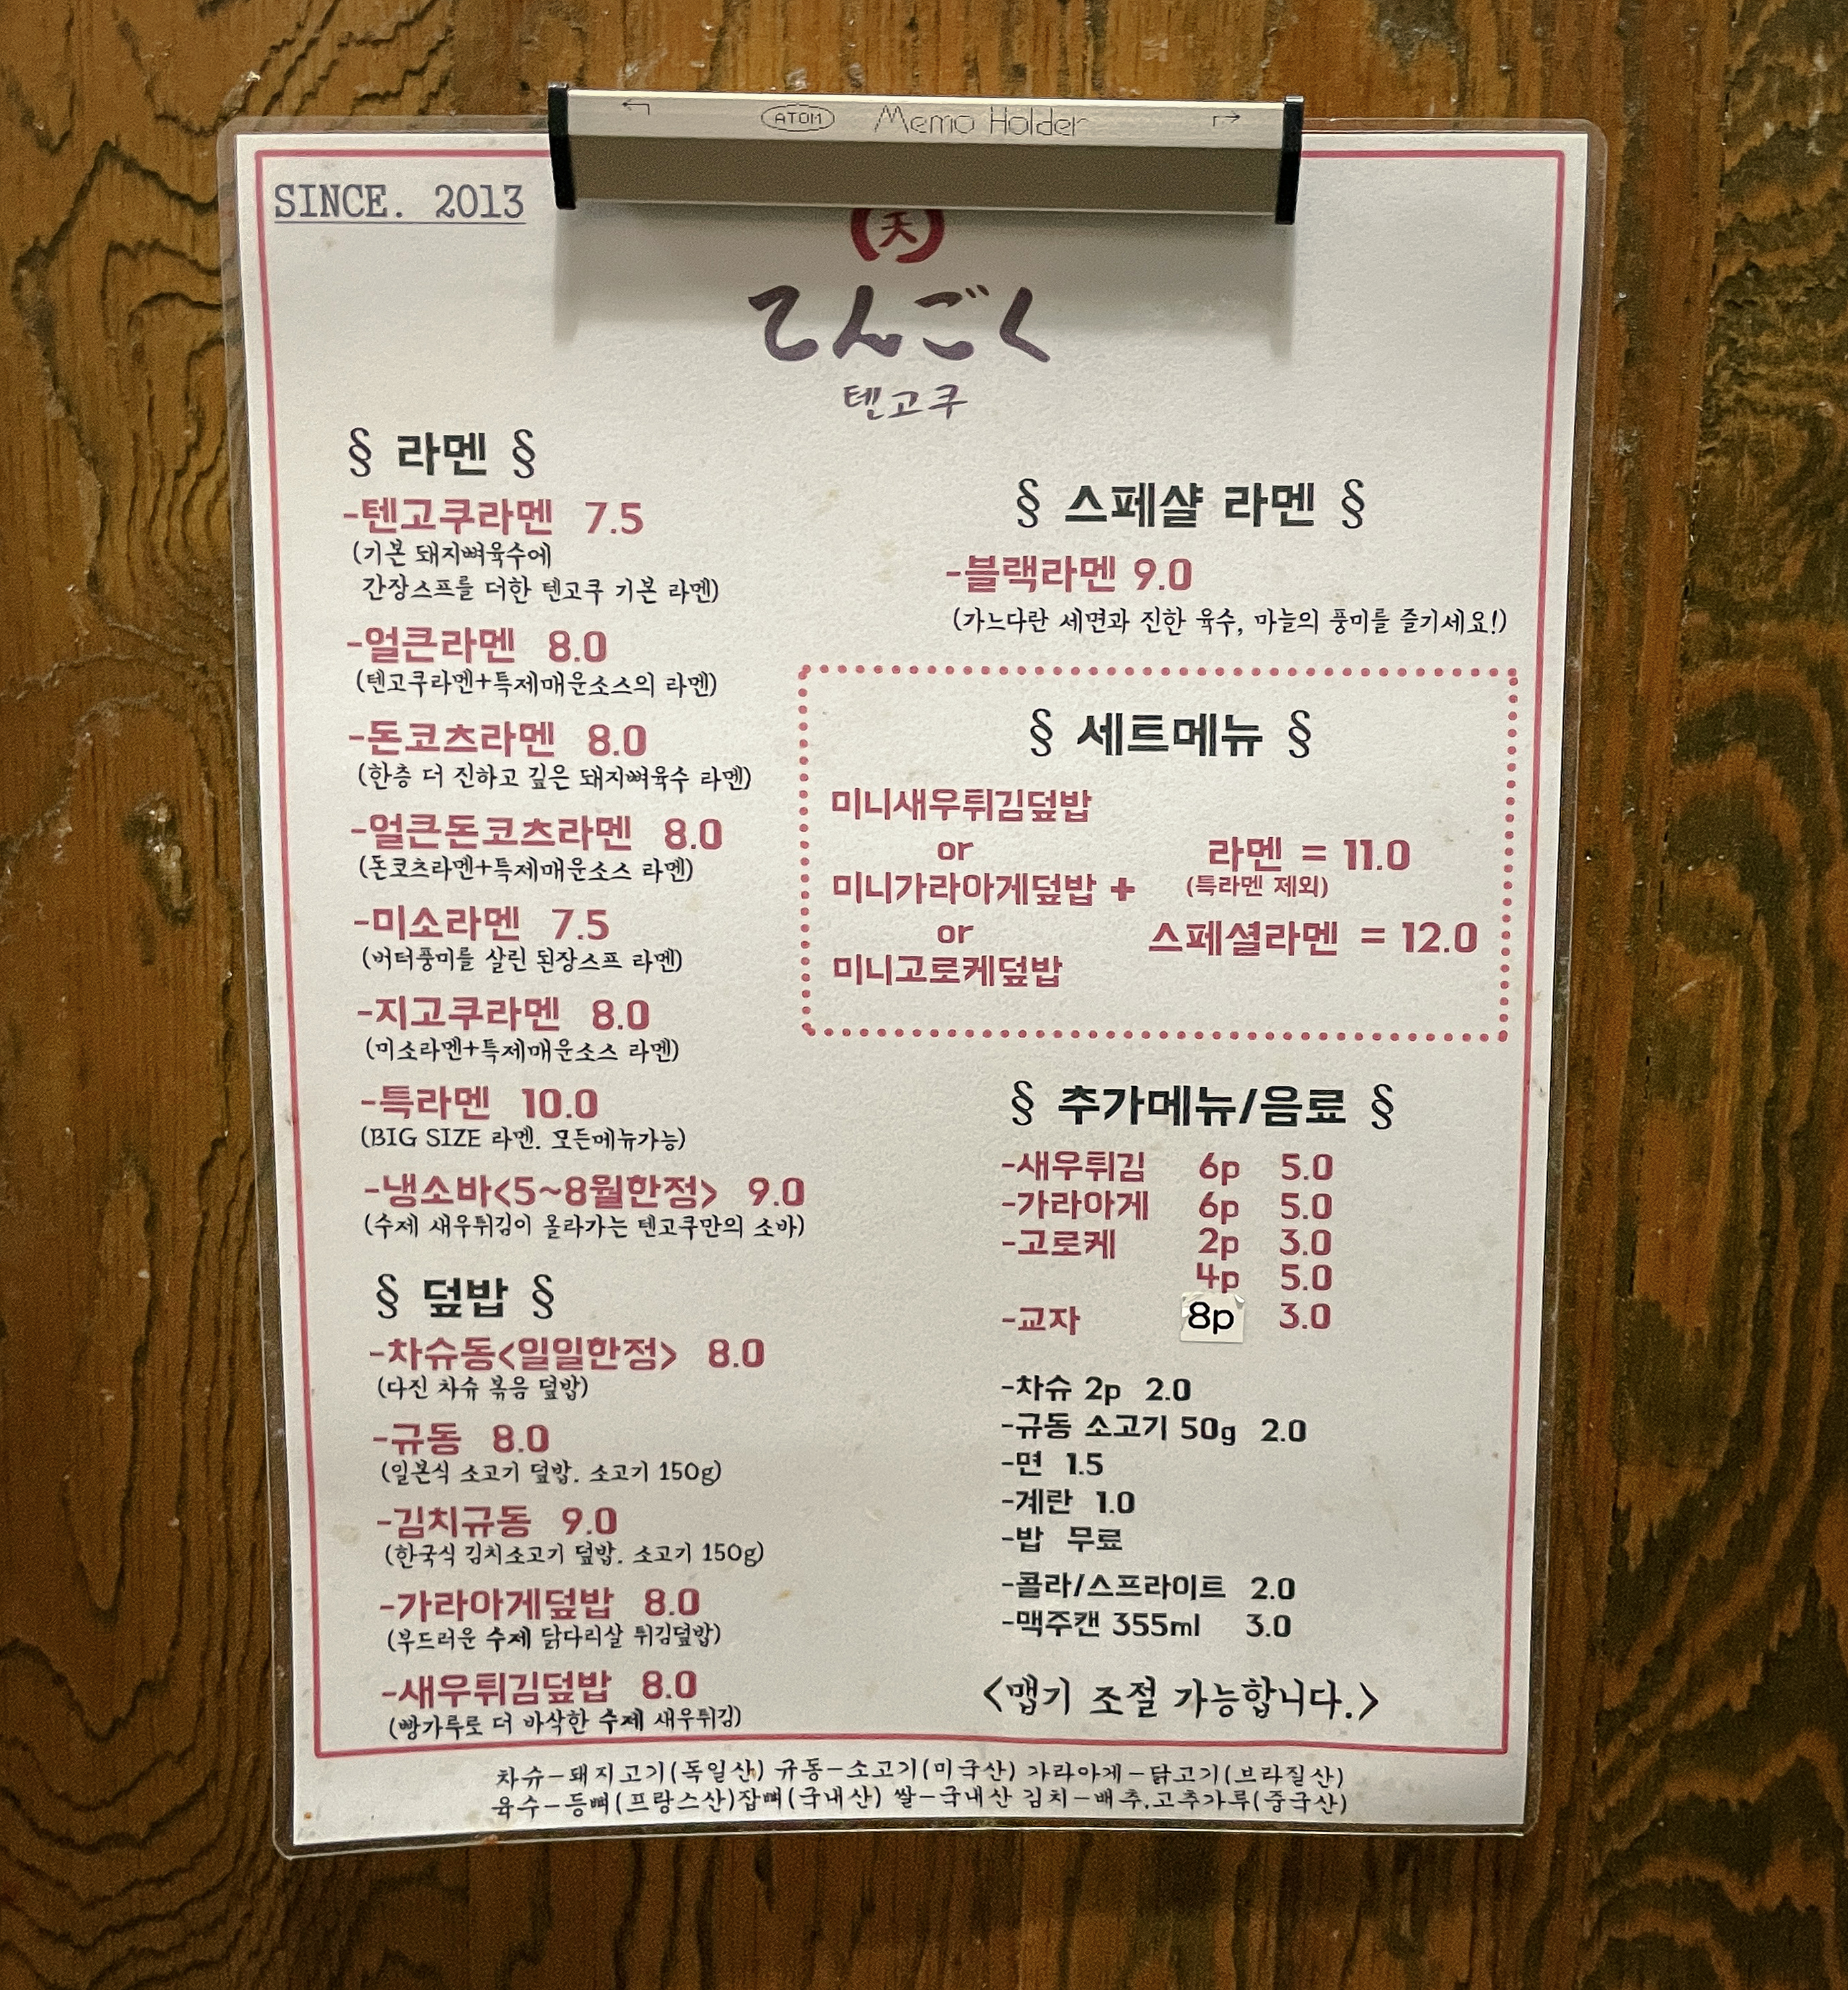 ATOM Memo Holder
SINCE. 2013
天
てんごく
텐고쿠
§ 라멘 §
-텐고쿠라멘 7.5
(기본 돼지뼈육수에
간장스프를 더한 텐고쿠 기본 라멘)
-얼큰라멘 8.0
(텐고쿠라멘+특제매운소스의 라멘)
-돈코츠라멘 8.0
(한층 더 진하고 깊은 돼지뼈육수 라멘)
-얼큰돈코츠라멘 8.0
(돈코츠라멘+특제매운소스 라멘)
-미소라멘 7.5
(버터풍미를 살린 된장스프 라멘)
-지고쿠라멘 8.0
(미소라멘+특제매운소스 라멘)
-특라멘 10.0
(BIG SIZE 라멘. 모든메뉴가능)
-냉소바<5~8월한정> 9.0
(수제 새우튀김이 올라가는 텐고쿠만의 소바)
§ 덮밥 §
-차슈동<일일한정> 8.0
(다진 차슈 볶음 덮밥)
-규동 8.0
(일본식 소고기 덮밥. 소고기 150g)
-김치규동 9.0
(한국식 김치소고기 덮밥. 소고기 150g)
-가라아게덮밥 8.0
(부드러운 수제 닭다리살 튀김덮밥)
-새우튀김덮밥 8.0
(빵가루로 더 바삭한 수제 새우튀김)
§ 스페샬 라멘 §
-블랙라멘 9.0
(가느다란 세면과 진한 육수, 마늘의 풍미를 즐기세요!)
§ 세트메뉴 §
미니새우튀김덮밥
or
미니가라아게덮밥 +
or
미니고로케덮밥
라멘 = 11.0
(특라멘 제외)
스페셜라멘 = 12.0
§ 추가메뉴/음료 §
-새우튀김 6p 5.0
-가라아게 6p 5.0
-고로케 2p 3.0
4p 5.0
-교자 8p 3.0
-차슈 2p 2.0
-규동 소고기 50g 2.0
-면 1.5
-계란 1.0
-밥 무료
-콜라/스프라이트 2.0
-맥주캔 355ml 3.0
<맵기 조절 가능합니다.>
차슈-돼지고기(독일산) 규동-소고기(미국산) 가라아게-닭고기(브라질산)
육수-등뼈(프랑스산)잡뼈(국내산) 쌀-국내산 김치-배추,고추가루(중국산)